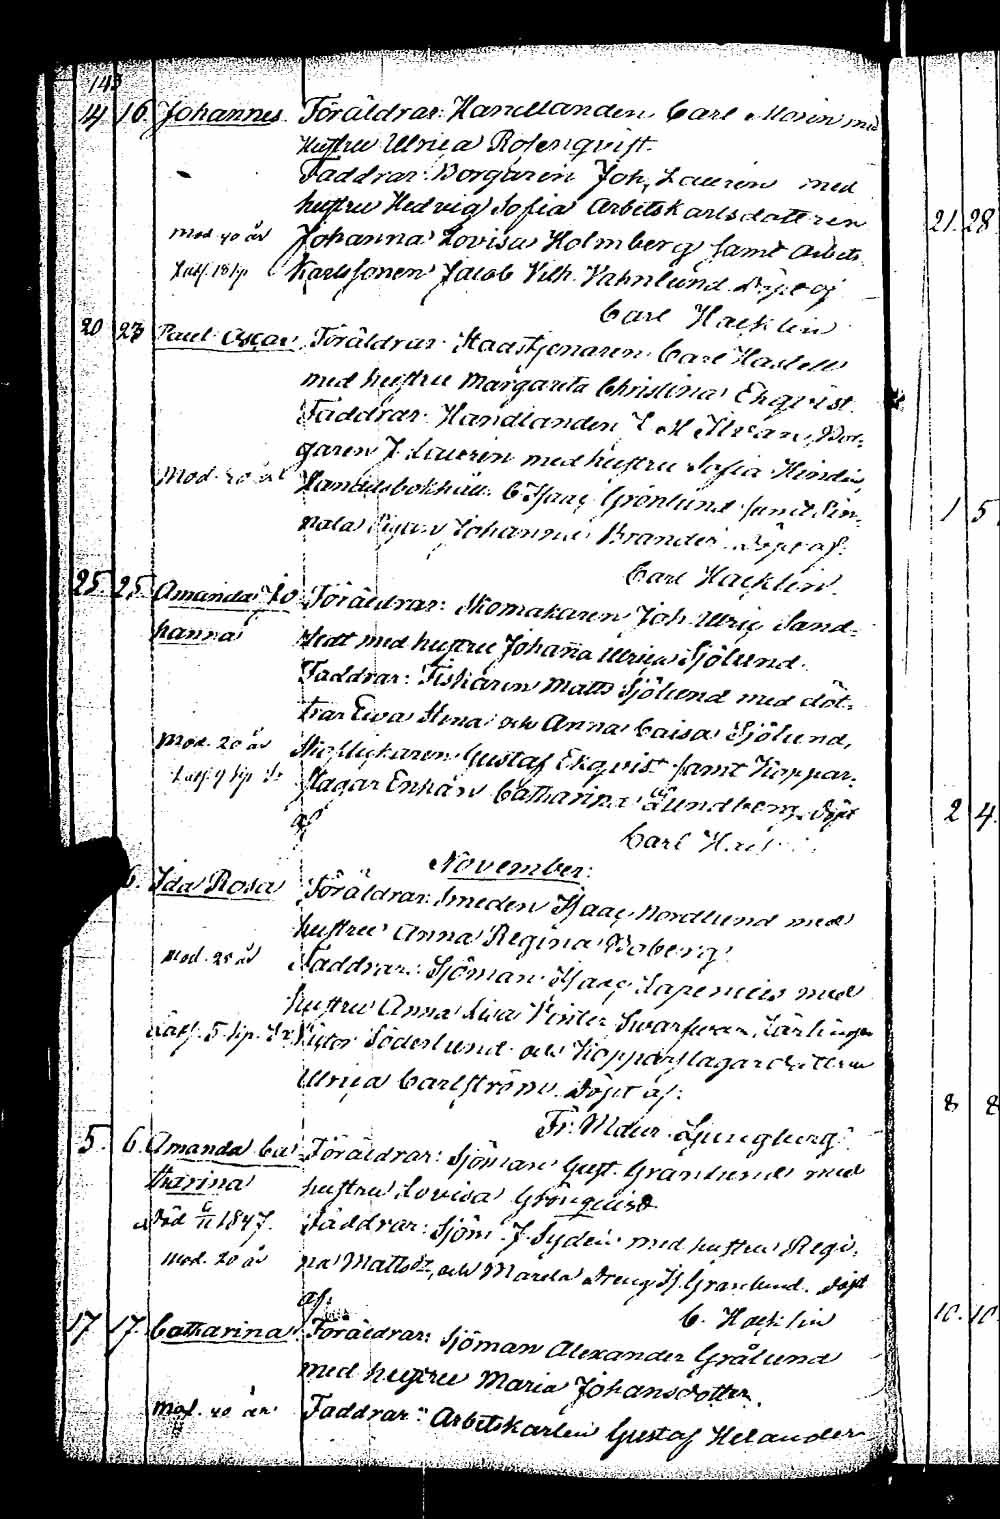 143
14 16. Johannes. Föräldrar: Handlanden Carl Morin med
hustru Ulrica Rosenqvist.
Faddrar: Borgaren Joh. Laurén med
hustru Hedvig Sofia Arbetskarlsdottren
Mod. 40 år Johanna Lovisa Holmberg samt Arbets
karlssonen Jacob Vilh. Vahnlund. Döpt af
Carl Hacklin
20 23 Paul Oscar, Föräldrar: Stadstjenaren Carl
med hustru Margareta Christina Ekqvist.
Faddrar: Handlanden Bor-
garen J. Laurén med hustru Sofia
Mod. 20 år Handelsbokhåll. C. Isaac Grönlund samt Pin-
nala Pigan Johanna Brander. Döpt af:
Carl Hacklin.
25. 25. Amanda Jo- Föräldrar: Skomakaren Joh. Ulric Sand-
hanna stedt med hustru Johanna Ulrica Sjölund.
Faddrar: Fiskaren Matts Sjölund med döt-
trar Eva Stina och Anna Caisa Sjölund,
Mod. 20 år Gustaf Ekqvist samt Koppar-
slagar Enkan Catharina Lundberg. Döpt
af
Carl
November:
6. Ida Rosa Föräldrar: Smeden Isaac Nordlund med
hustru Anna Regina Boberg.
Mod. 25 år Faddrar: Sjöman Isaac med
hustru Anna Lisa Vinter Svarfvar Lärlingen
Victor Söderlund och Kopparslagaredottren
Ulrica Carlström. Döpt af:
Fr. Maur. Ljungberg.
5. 6. Amanda Ca- Föräldrar: Sjöman Gust. Granlund med
tharina hustru Lovisa Grönqvist
Född 1847. Faddrar: Sjöm. J. Sydén med hustru Regi-
Mod. 20 år na Mattsdr, och Dreng Is. Granlund. Döpt
af:
C. Hacklin
17 17. Catharina. Föräldrar: Sjöman Alexander Grålund
med hustru Maria Johansdotter.
Mod. 40 år Faddrar: Arbetskarlen Gustaf Helander
21. 28
1 5.
2 4.
8 8
10. 10